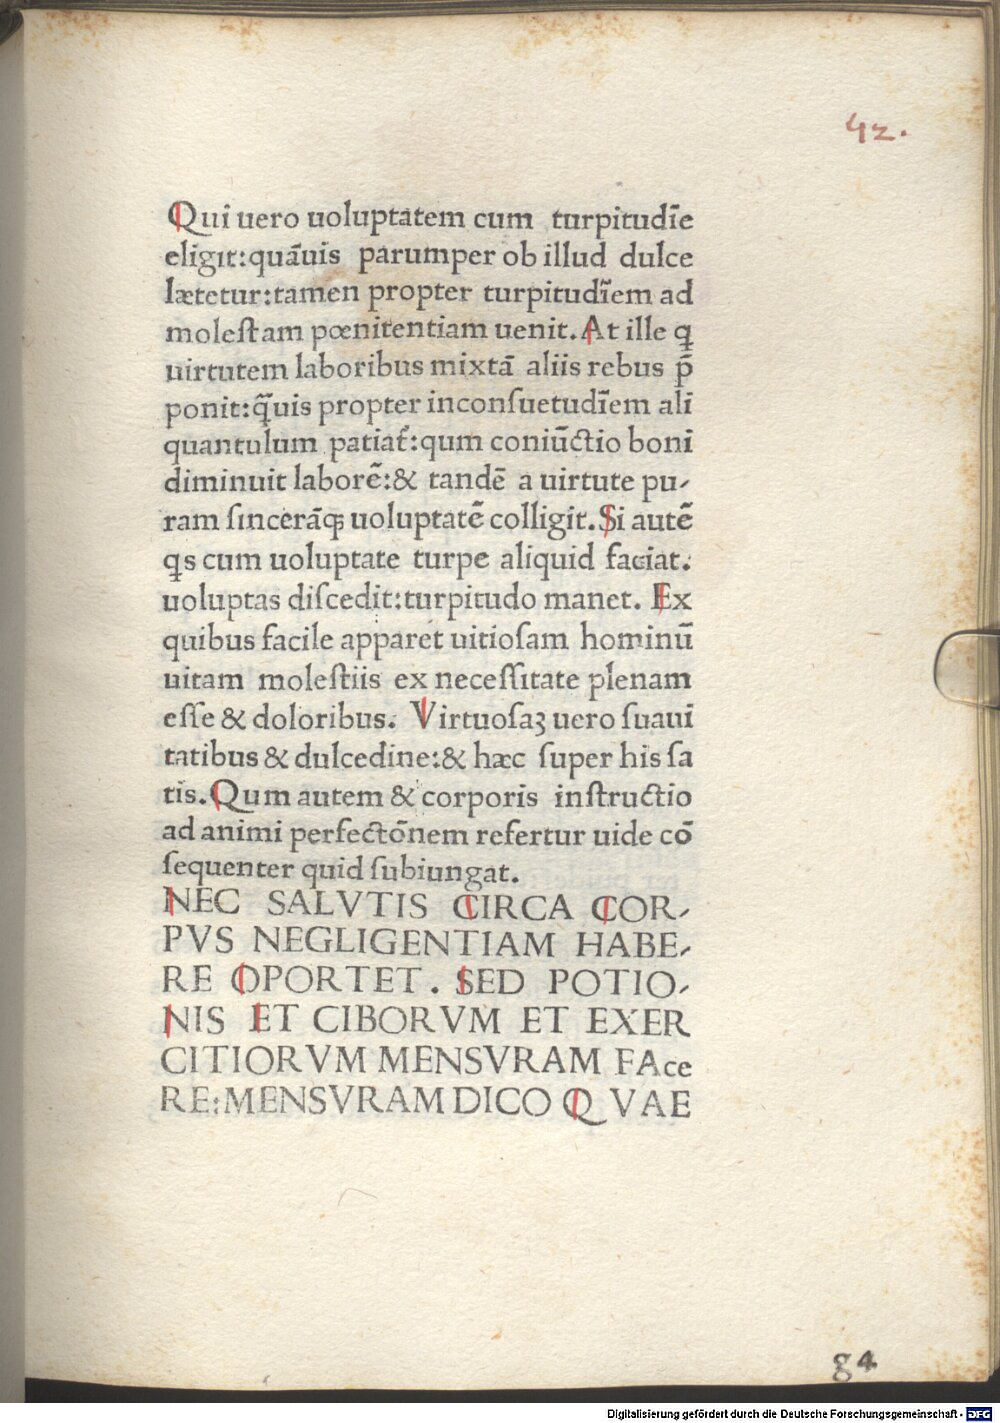 42.
Qui uero uoluptatem cum turpitudīe
eligit:quāuis parumper ob illud dulce
lætetur:tamen propter turpitudīem ad
moleſtam pœnitentiam uenit. At ille q̄
uirtutem laboribus mixtā aliis rebus p̄
ponit:q̄uis propter inconſuetudīem ali
quantulum patiat̄:qum coniūctio boni
diminuit laborē:& tandē a uirtute pu-
ram ſincerāqꝫ uoluptatē colligit. Si autē
qs cum uoluptate turpe aliquid faciat:
uoluptas diſcedit:turpitudo manet. Ex
quibus facile apparet uitioſam hominū
uitam moleſtiis ex neceſſitate plenam
eſſe & doloribus. Virtuoſaꝫ uero ſuaui
tatibus & dulcedine:& hæc ſuper his ſa
tis. Qum autem & corporis inſtructio
ad animi perfectōnem refertur uide cō
ſequenter quid ſubiungat.
NEC SALVTIS CIRCA COR-
PVS NEGLIGENTIAM HABE-
RE OPORTET. SED POTIO-
NIS ET CIBORVM ET EXER
CITIORVM MENSVRAM FAce
RE:MENSVRAM DICO QVAE
g4
Digitalisierung gefördert durch die Deutsche Forschungsgemeinschaft - DFG